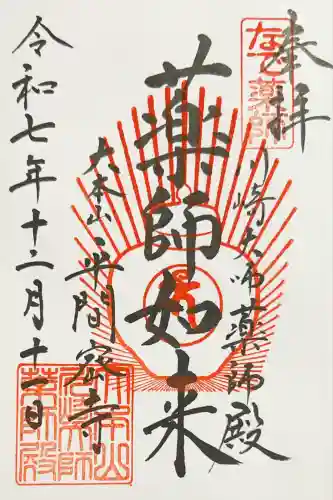 奉拝
なで薬師
川崎大師薬師殿
薬師如来
大本山平間密寺
令和七年十二月十一日